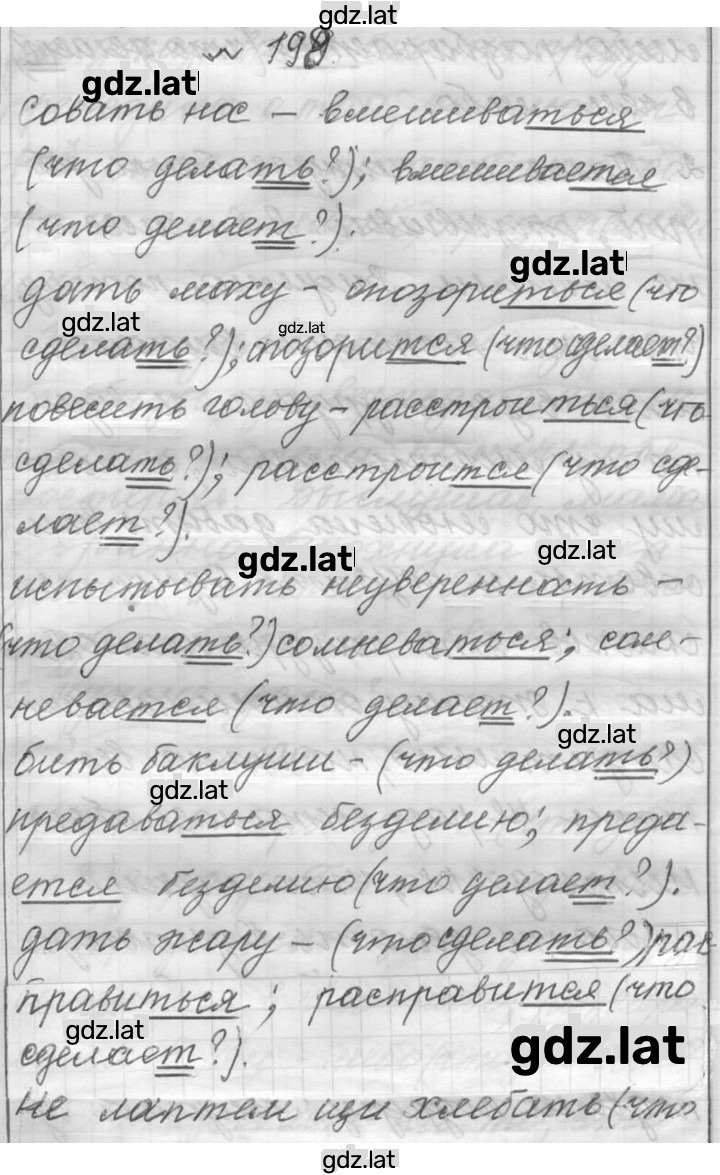 gdz.lat
№ 198.
gdz.lat
совать нос – вмешиваться
(что делать?); вмешивается
(что делает?).
gdz.lat
дать маху – опозориться (что
gdz.lat
gdz.lat
сделать?); опозорится (что сделает?)
повесить голову – расстроиться (что
сделать?); расстроится (что сде-
лает?).
gdz.lat
gdz.lat
испытывать неуверенность –
(что делать?) сомневаться; сом-
невается (что делает?).
gdz.lat
бить баклуши – (что делать?)
gdz.lat
предаваться безделию; преда-
ется безделию (что делает?).
дать жару – (что сделать?) рас
правиться; расправится (что
gdz.lat
gdz.lat
сделает?).
не лаптем щи хлебать (что
gdz.lat